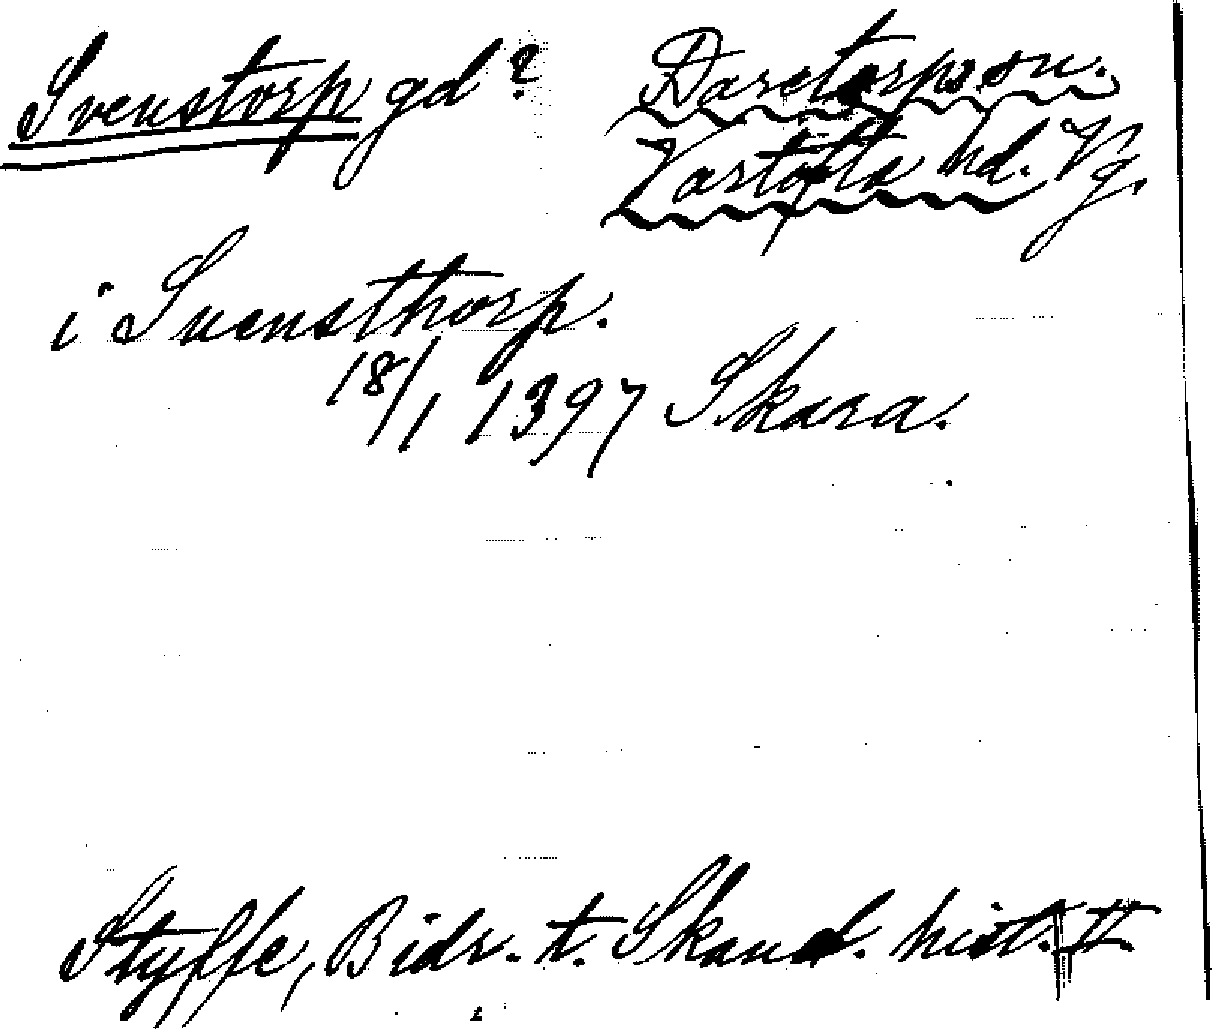 Svenstorp gd? Daretorps sn.
Vartofta hd. Vg.
i Svensthorp.
18/1 1397 Skara.
Styffe, Bidr. t. Skand. hist. II.